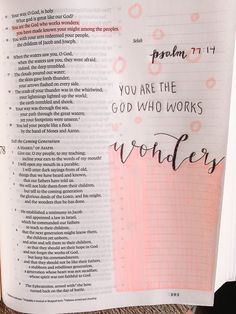 Your way, O God, is holy.
What god is great like our God?
You are the God who works wonders;
you have made known your might among the peoples.
You with your arm redeemed your people,
the children of Jacob and Joseph.
Selah
psalm 77:14
When the waters saw you, O God,
when the waters saw you, they were afraid;
indeed, the deep trembled.
The clouds poured out water;
the skies gave forth thunder;
your arrows flashed on every side.
The crash of your thunder was in the whirlwind;
your lightnings lighted up the world;
the earth trembled and shook.
Your way was through the sea,
your path through the great waters;
yet your footprints were unseen.
You led your people like a flock
by the hand of Moses and Aaron.
YOU ARE THE
GOD WHO WORKS
wonders
Tell the Coming Generation
78
Give ear, O my people, to my teaching;
incline your ears to the words of my mouth!
I will open my mouth in a parable;
I will utter dark sayings from of old,
things that we have heard and known,
that our fathers have told us.
We will not hide them from their children,
but tell to the coming generation
the glorious deeds of the LORD, and his might,
and the wonders that he has done.
He established a testimony in Jacob
and appointed a law in Israel,
which he commanded our fathers
to teach to their children,
that the next generation might know them,
the children yet unborn,
and arise and tell them to their children,
so that they should set their hope in God
and not forget the works of God,
but keep his commandments;
and that they should not be like their fathers,
a stubborn and rebellious generation,
a generation whose heart was not steadfast,
whose spirit was not faithful to God.
The Ephraimites, armed with the bow,
turned back on the day of battle.